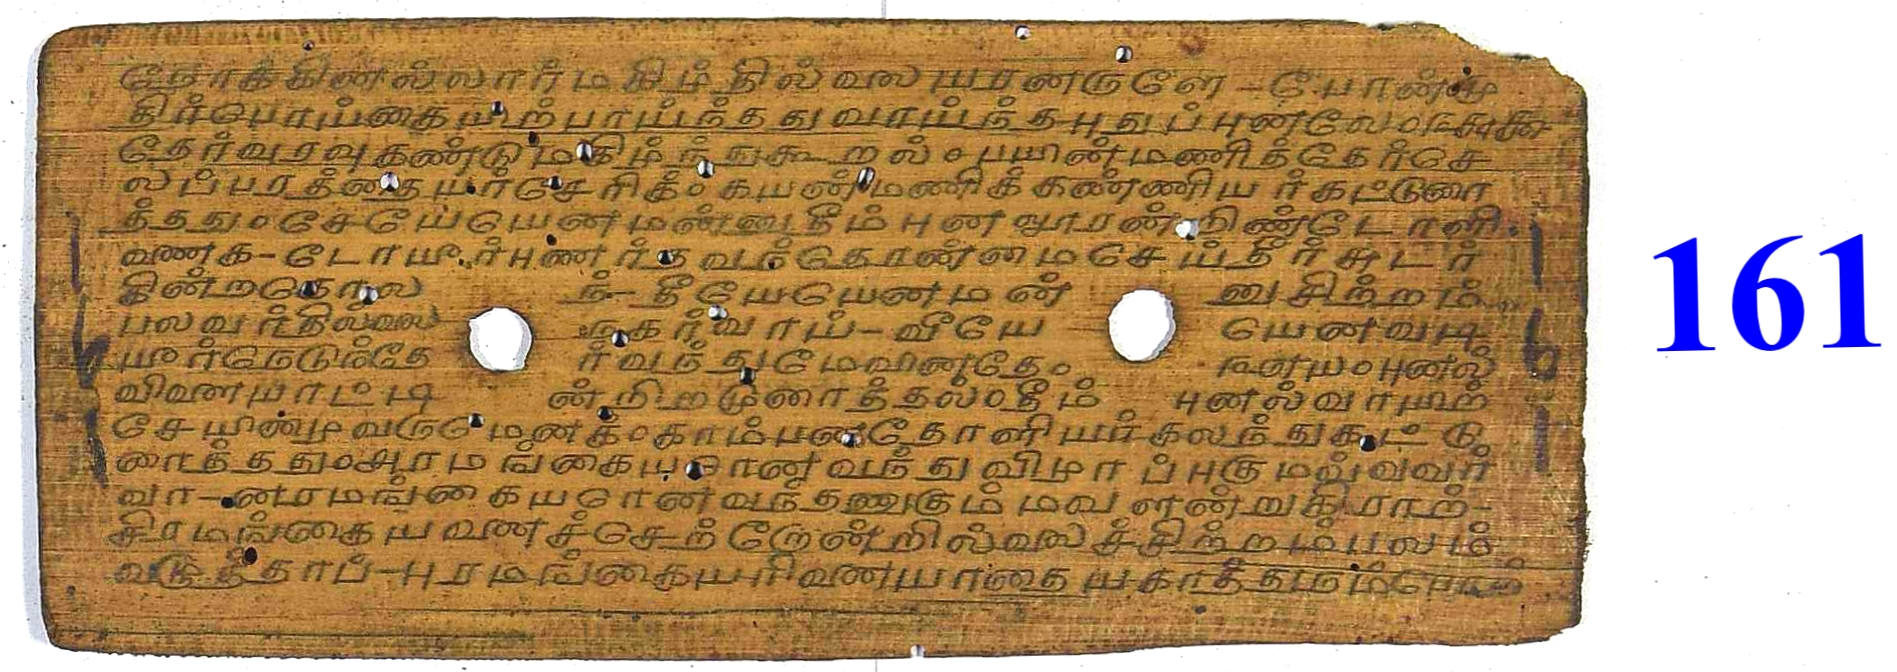 நோக்கினல்லார்மகிழ்தில்லையரனருளே -போன்மு
திர்பொய்கையிற்பாய்ந்ததுவாய்ந்தபுதுப்புனலே௦
தேர்வரவுகண்டுமகிழ்ந்துகூறல்௦பயின்மணித்தேர்செ
லப்பரத்தையர்சேரிக்௦கயன்மணிக்கண்ணியர்கட்டுரை
த்தது௦சேயேயெனமன்னுதீம்புனலூரன்றிண்டோளி
ணைக-டோயீர்புணர்தவந்தொன்மைசெய்தீர்சுடர்
கின்றகொல ந்-தீயேயெனமன் னுசிற்றம்
பலவர்தில்லை நகர்வாய்-வீயே யெனவடி
யீர்நெடுந்தே ர்வந்துமேவினதே௦ புனல்
விளையாட்டி ன்றிறமுரைத்தல்௦தீம் புனல்வாயிற்
சேயிழைவருமெனக்௦காம்பனதோளியர்கலந்துகட்டு
ரைத்தது௦அரமங்கையரெனவந்துவிழாப்புகுமவ்வவர்
வா-னரமங்கையரெனவந்தணுகும்மவளன்றுகிராற்-
சிரமங்கையவனைச்செற்றோன்றில்லைச்சிற்றம்பலம்
வழுத்தாப்-புரமங்கையரினையாதையகாத்துநம்பொற்
161